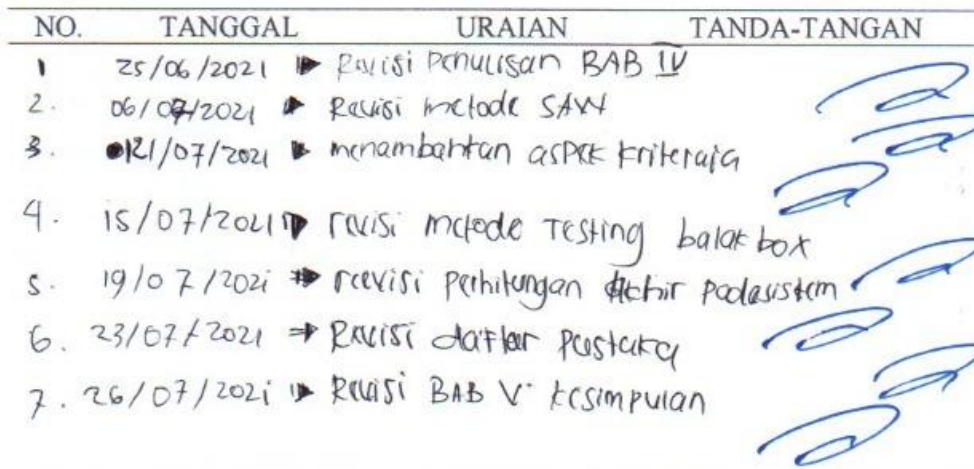 NO. TANGGAL URAIAN TANDA-TANGAN
1 25/06/2021 Revisi Penulisan BAB IV
2. 06/07/2021 Revisi metode SAW
3. 12/07/2021 menambahkan aspek kriteraia
4. 15/07/2021 revisi metode Testing balak box
5. 19/07/2021 reevisi perhitungan akhir padasistem
6. 23/07/2021 Revisi daftar Pustaka
7. 26/07/2021 Revisi BAB V kesimpulan